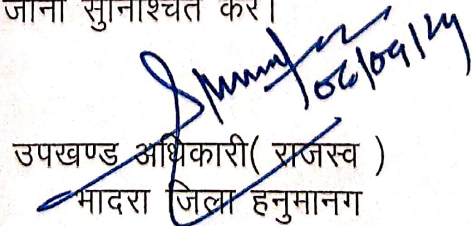 जाना सुनिश्चित करें।
06/09/24
उपखण्ड अधिकारी( राजस्व )
भादरा जिला हनुमानग